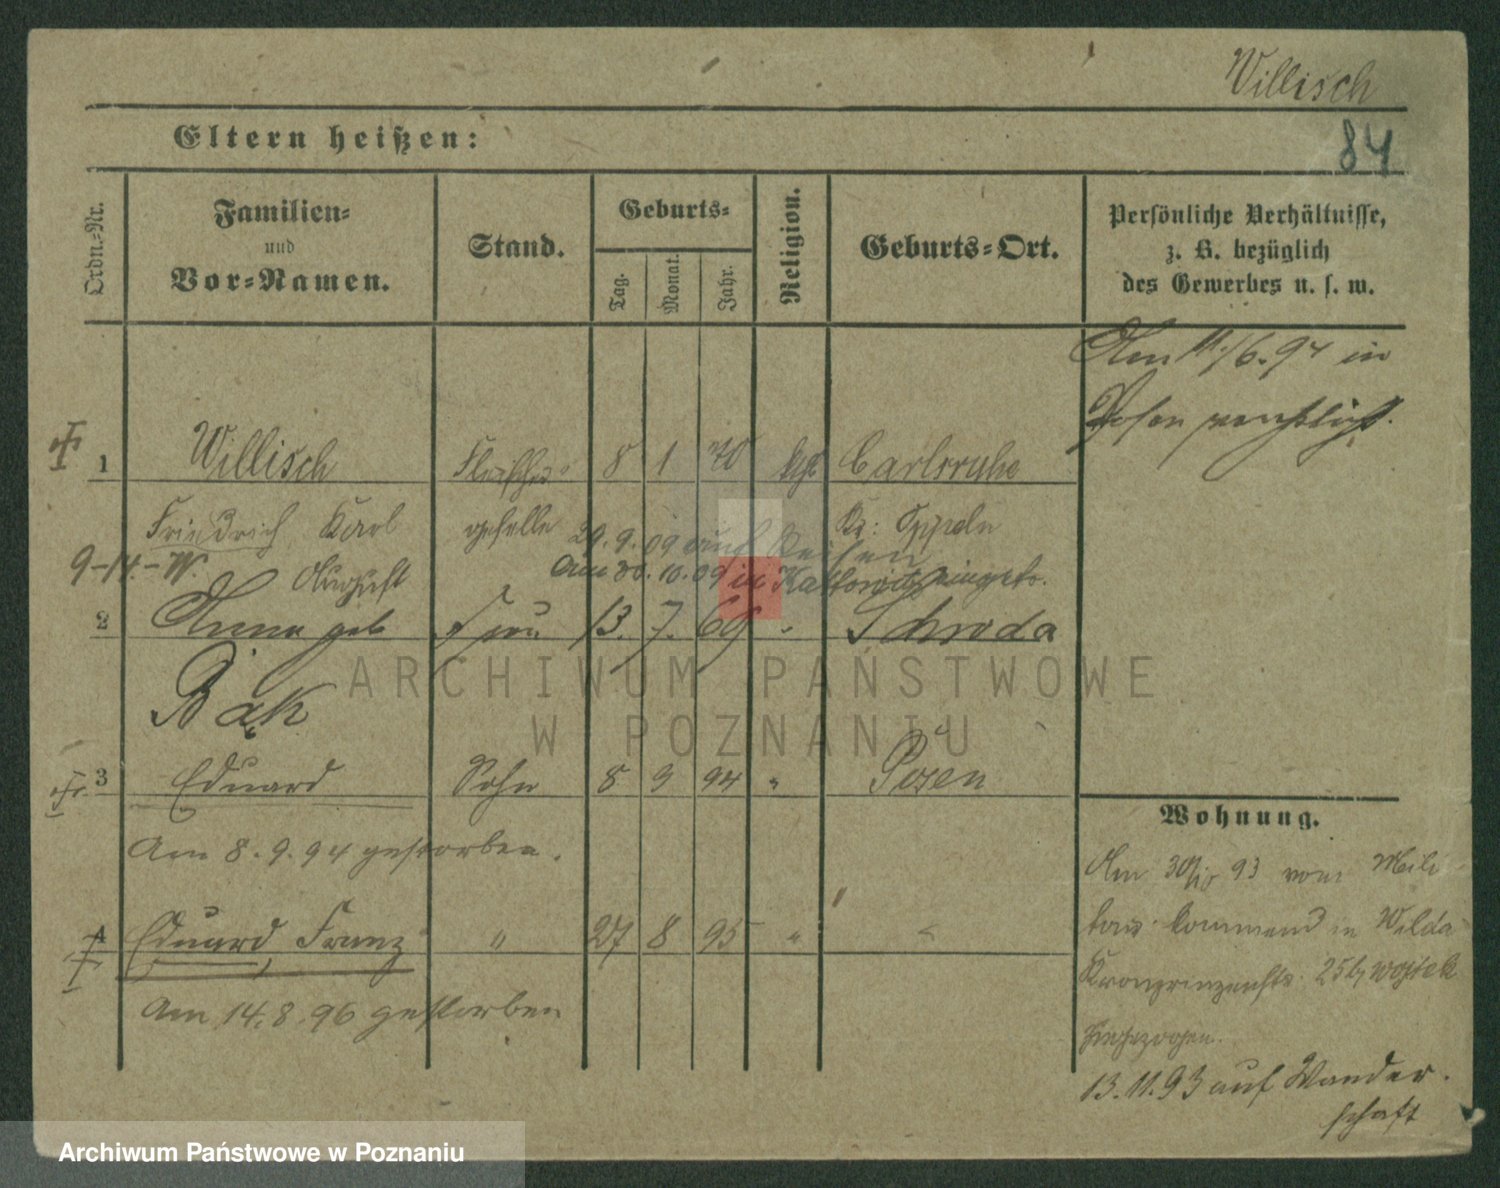 Willisch
84
Eltern heißen:
Ordn.-Nr.
Familien-
und
Vor-Namen.
Stand.
Geburts-
Tag.
Monat.
Jahr.
Religion.
Geburts-Ort.
Persönliche Verhältnisse,
z. B. bezüglich
des Gewerbes u. s. w.
Am 11/6.94 in
Posen
1 Willisch Fleischer 8 1 70 kath Carlsruhe
Friedrich Karl geselle Kr: Oppeln
August
29.9.09 auf Reisen
Am 30.10.09 in Kattowitz
9-14.-W.
2 Anna geb Frau 13. 7. 69 " Schroda
Bąk
3 Eduard Sohn 8 9 94 " Posen
Am 8.9.94 gestorben.
4 Eduard Franz " 27 8 95 " "
Am 14.8.96 gestorben
Wohnung.
Am 30/10 93 vom Mili
tair kommend in Wilda
Kronprinzenstr. 25 b/
13.11.93 auf Wander
schaft
ARCHIWUM PAŃSTWOWE
W POZNANIU
Archiwum Państwowe w Poznaniu